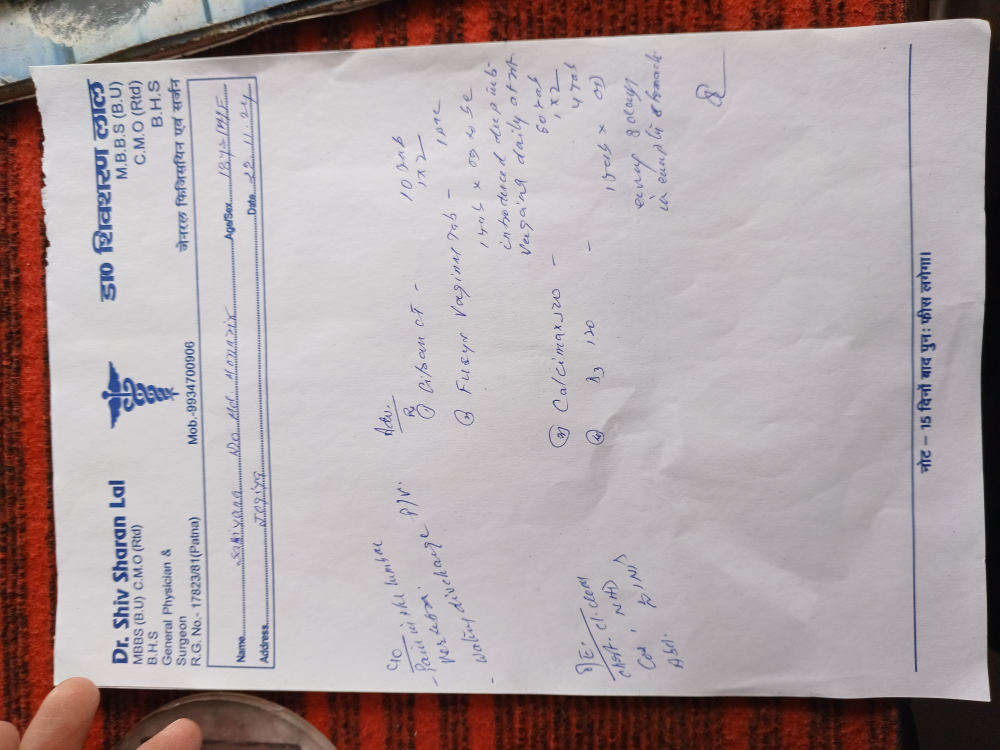 Dr. Shiv Sharan Lal
MBBS (B.U) C.M.O (Rtd)
B.H.S
General Physician &
Surgeon
R.G. No.- 17823/81(Patna)
Mob.-9934700906
डा० शिवशरण लाल
M.B.B.S (B.U)
C.M.O (Rtd)
B.H.S
जेनरल फिजिसियन एवं सर्जन
Name Age/Sex 18ys M/F
Address Date 22.11.24
C/O
- Pain in the lumbar
vertebra
- watery discharge P/V.
O/E.
Chest. Cl. clear
CVS, NAD
Adv.
Rx
① 10 tab
1x2
② Vaginal Tab - 1 pac
1 tab x OD to be
introduced deep into
vagaina daily at nt
③ Calcimax 520 - 60 tab
1x2
④ D3 - 4 tab
1 tab x OD
every 8 days
in empty stomach
नोट – 15 दिनों बाद पुनः फीस लगेगा।